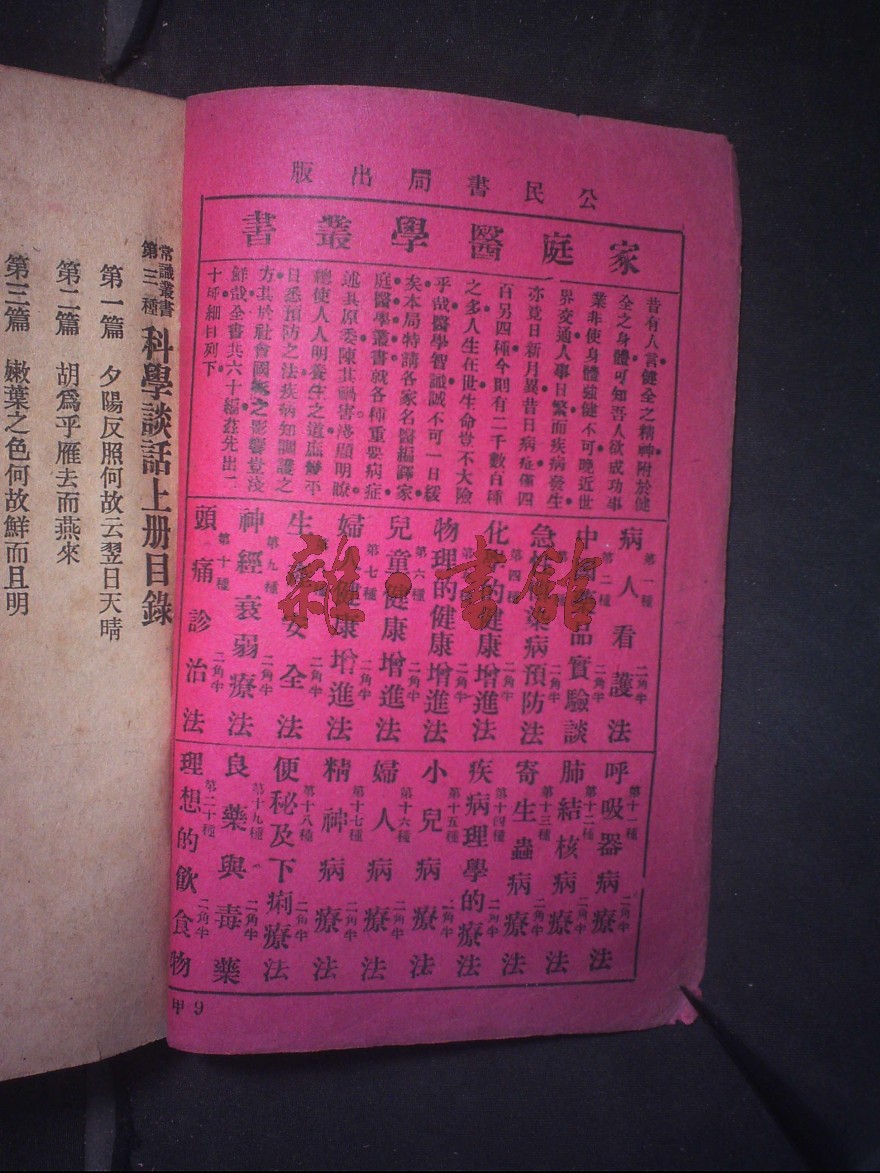 公民書局出版
家庭醫學叢書
昔有人言健全之精神附於健
全之身體可知吾人欲成功事
業非使身體強健不可晚近世
界交通人事日繁而疾病發生
亦竟日新月異昔日病症僅四
百另四種今則有二千數百種
之多人生在世生命豈不大險
乎哉醫學智識誠不可一日緩
矣本局特請各家名醫編譯家
庭醫學叢書就各種重要病症
述其原委陳其禍害淺顯明瞭
總使人人明養生之道庶幾平
日悉預防之法疾病知調護之
方其於社會國家之影響豈淺
鮮哉全書共六十編茲先出二
十種細目列下
第一種 病人看護法 二角半
第二種 中國藥品實驗談 二角半
急性藥病預防法 二角半
第四種 化學的健康增進法 二角半
物理的健康增進法 二角半
第六種 兒童健康增進法 二角半
第七種 婦人健康增進法 二角半
生產安全法 二角半
第九種 神經衰弱療法 二角半
第十種 頭痛診治法 二角半
第十一種 呼吸器病療法 二角半
第十二種 肺結核病療法 二角半
第十三種 寄生蟲病療法 二角半
第十四種 疾病理學的療法 二角半
第十五種 小兒病療法 二角半
第十六種 婦人病療法 二角半
第十七種 精神病療法 二角半
第十八種 便秘及下痢療法 二角半
第十九種 良藥與毒藥 二角半
第二十種 理想的飲食物 二角半
甲9
常識叢書
第三種
科學談話上册目錄
第一篇 夕陽反照何故云翌日天晴
第二篇 胡爲乎雁去而燕來
第三篇 嫩葉之色何故鮮而且明
雜·書館